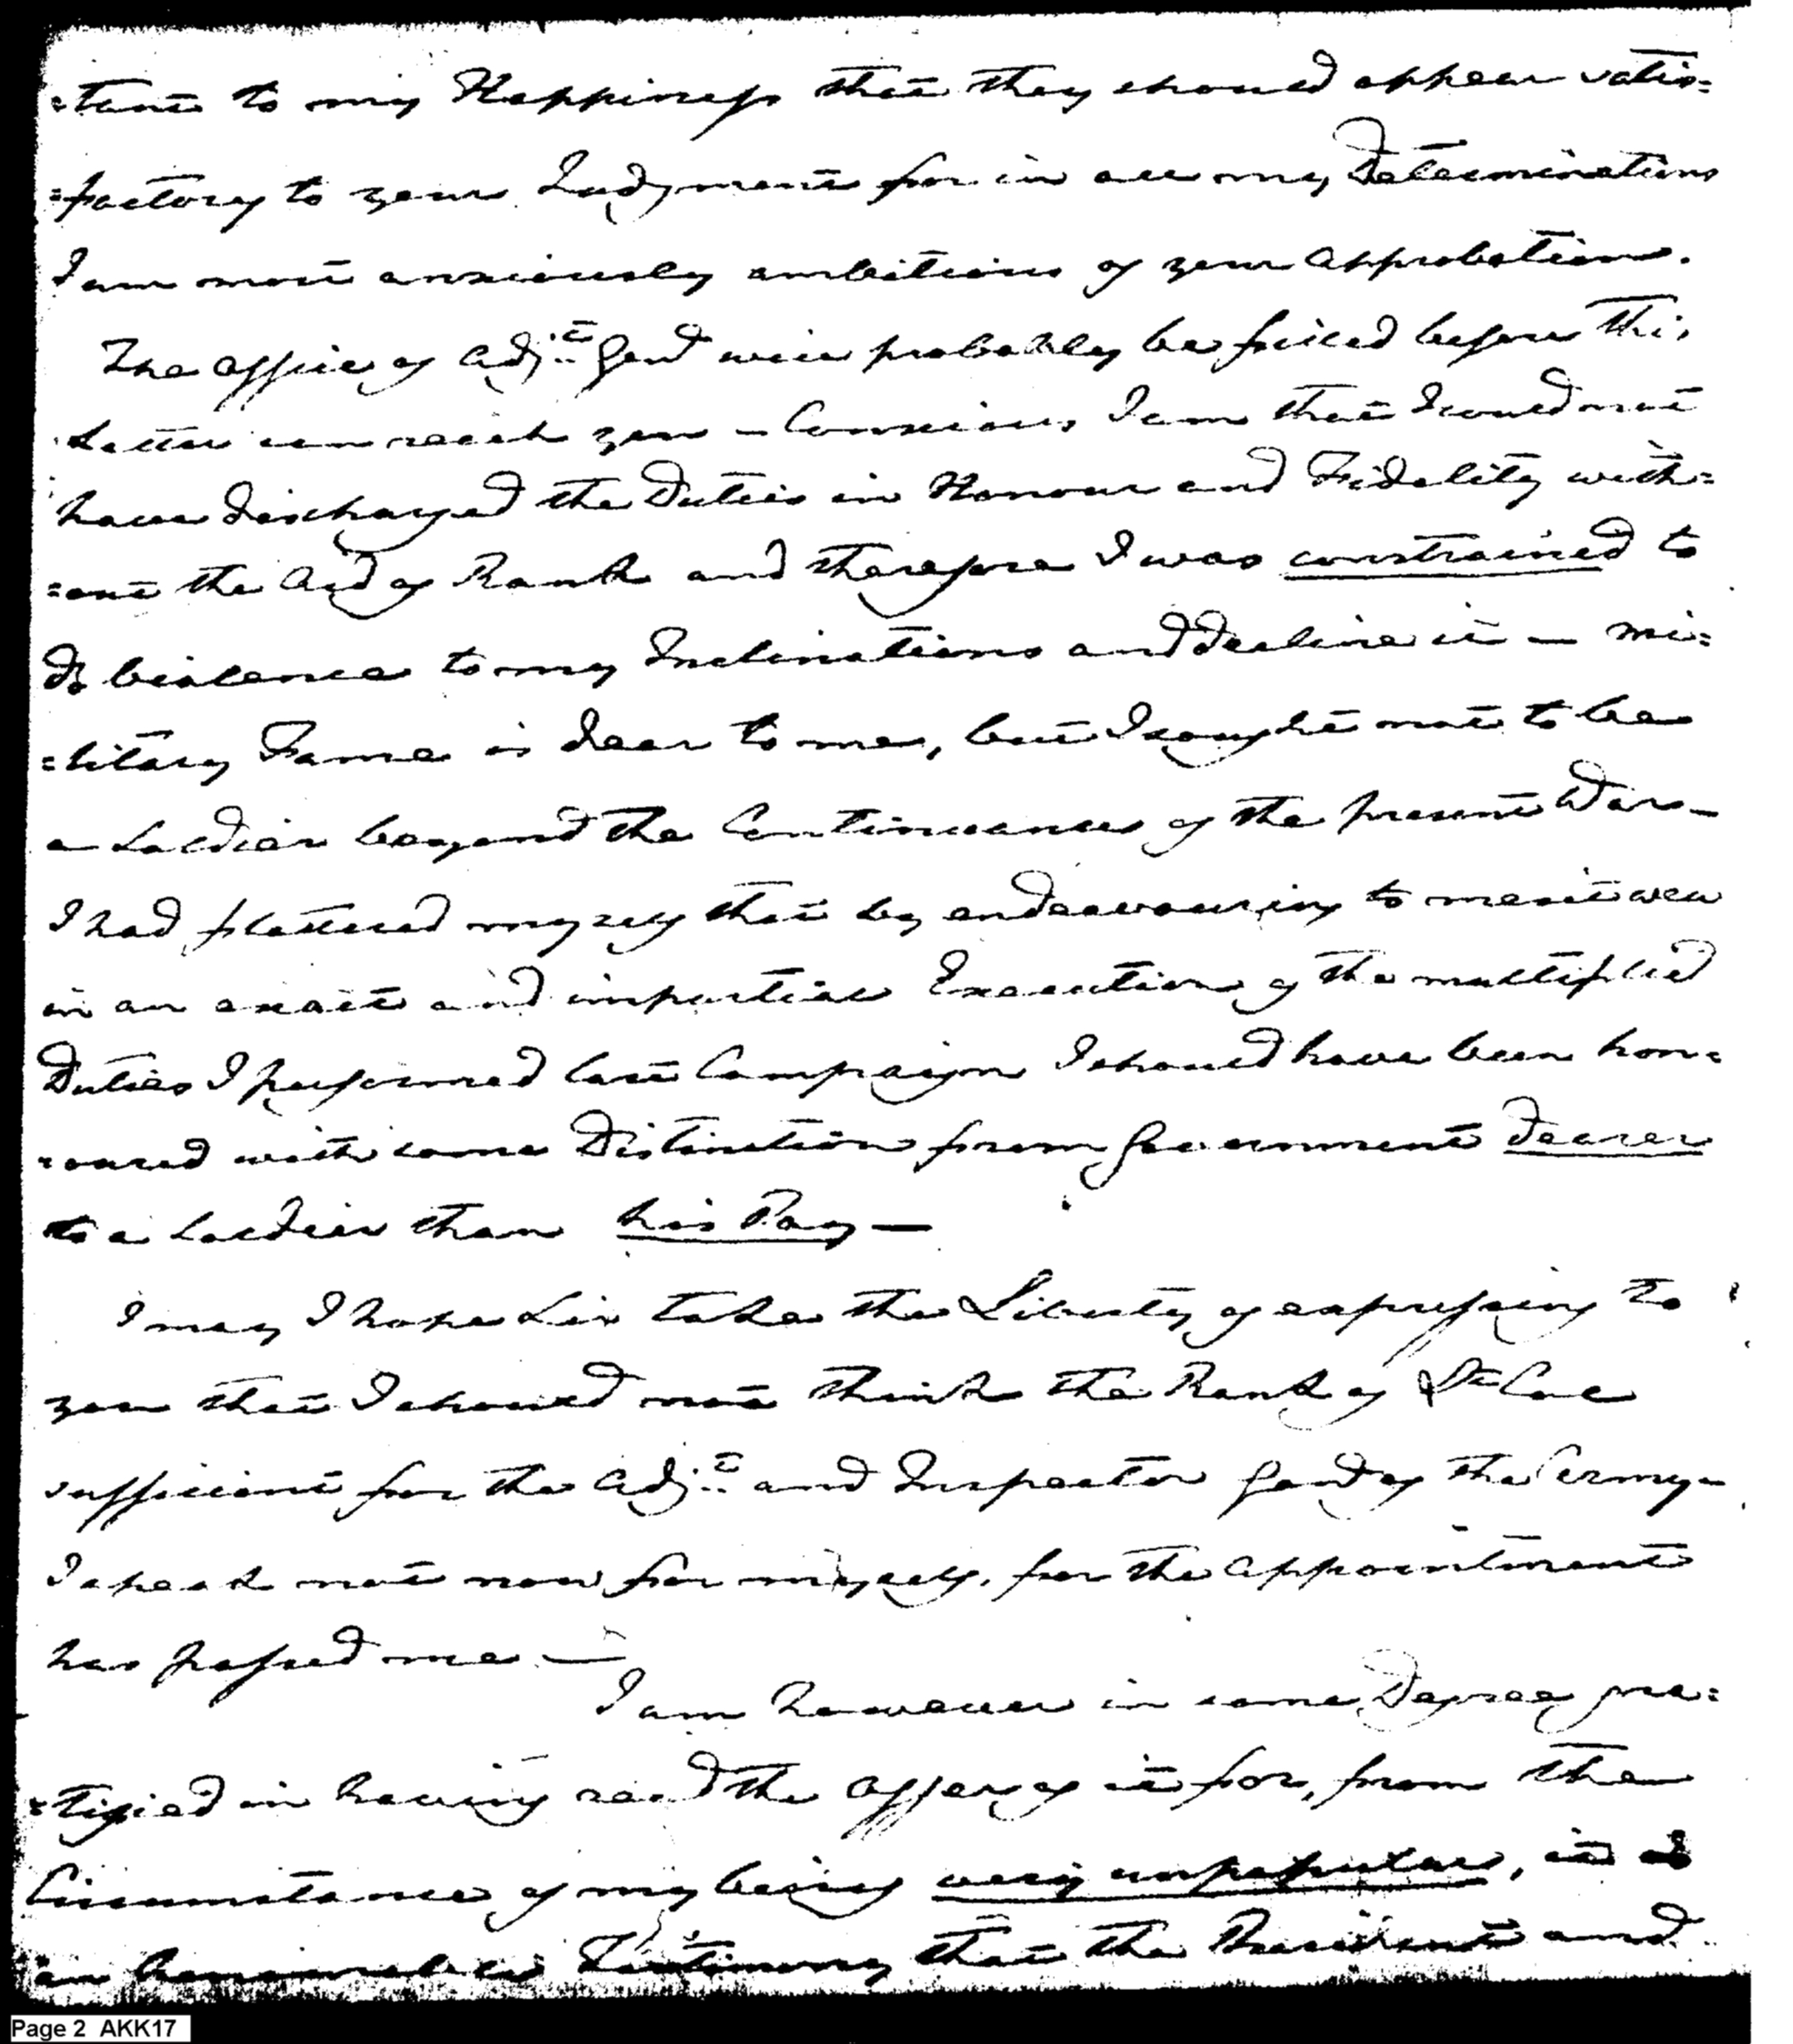 =tant to my Happiness that they should appear satis=
=factory to your Judgment for in all my Determinations
I am most anxiously ambitious of your Approbation.
The Office of Adjt. Genl will probably be filled before this
Letter can reach you — Conscious I am that I could not
have discharged the Duties in Honour and Fidelity with=
=out the Aid of Rank and therefore I was constrained to
do Violence to my Inclinations and decline it — mi=
=litary Fame is dear to me, but I sought not to be
a Soldier beyond the Continuance of the present War —
I had flattered myself that by endeavouring to merit well
in an exact and impartial Execution of the multiplied
Duties I performed last Campaign I should have been hon=
=oured with some Distinction from Government dearer
to a Soldier than his Pay —
I may I hope Sir take the Liberty of expressing to
you that I should not think the Rank of Lt Col
sufficient for the Adjt. and Inspector Genl of the Army —
I speak not now for myself, for the Appointment
has passed me —
I am however in some Degree gra=
=tified in having had the Offer of it for, from the
Circumstance of my being very unpopular, it is
an honourable Testimony that the President and
Page 2 AKK17